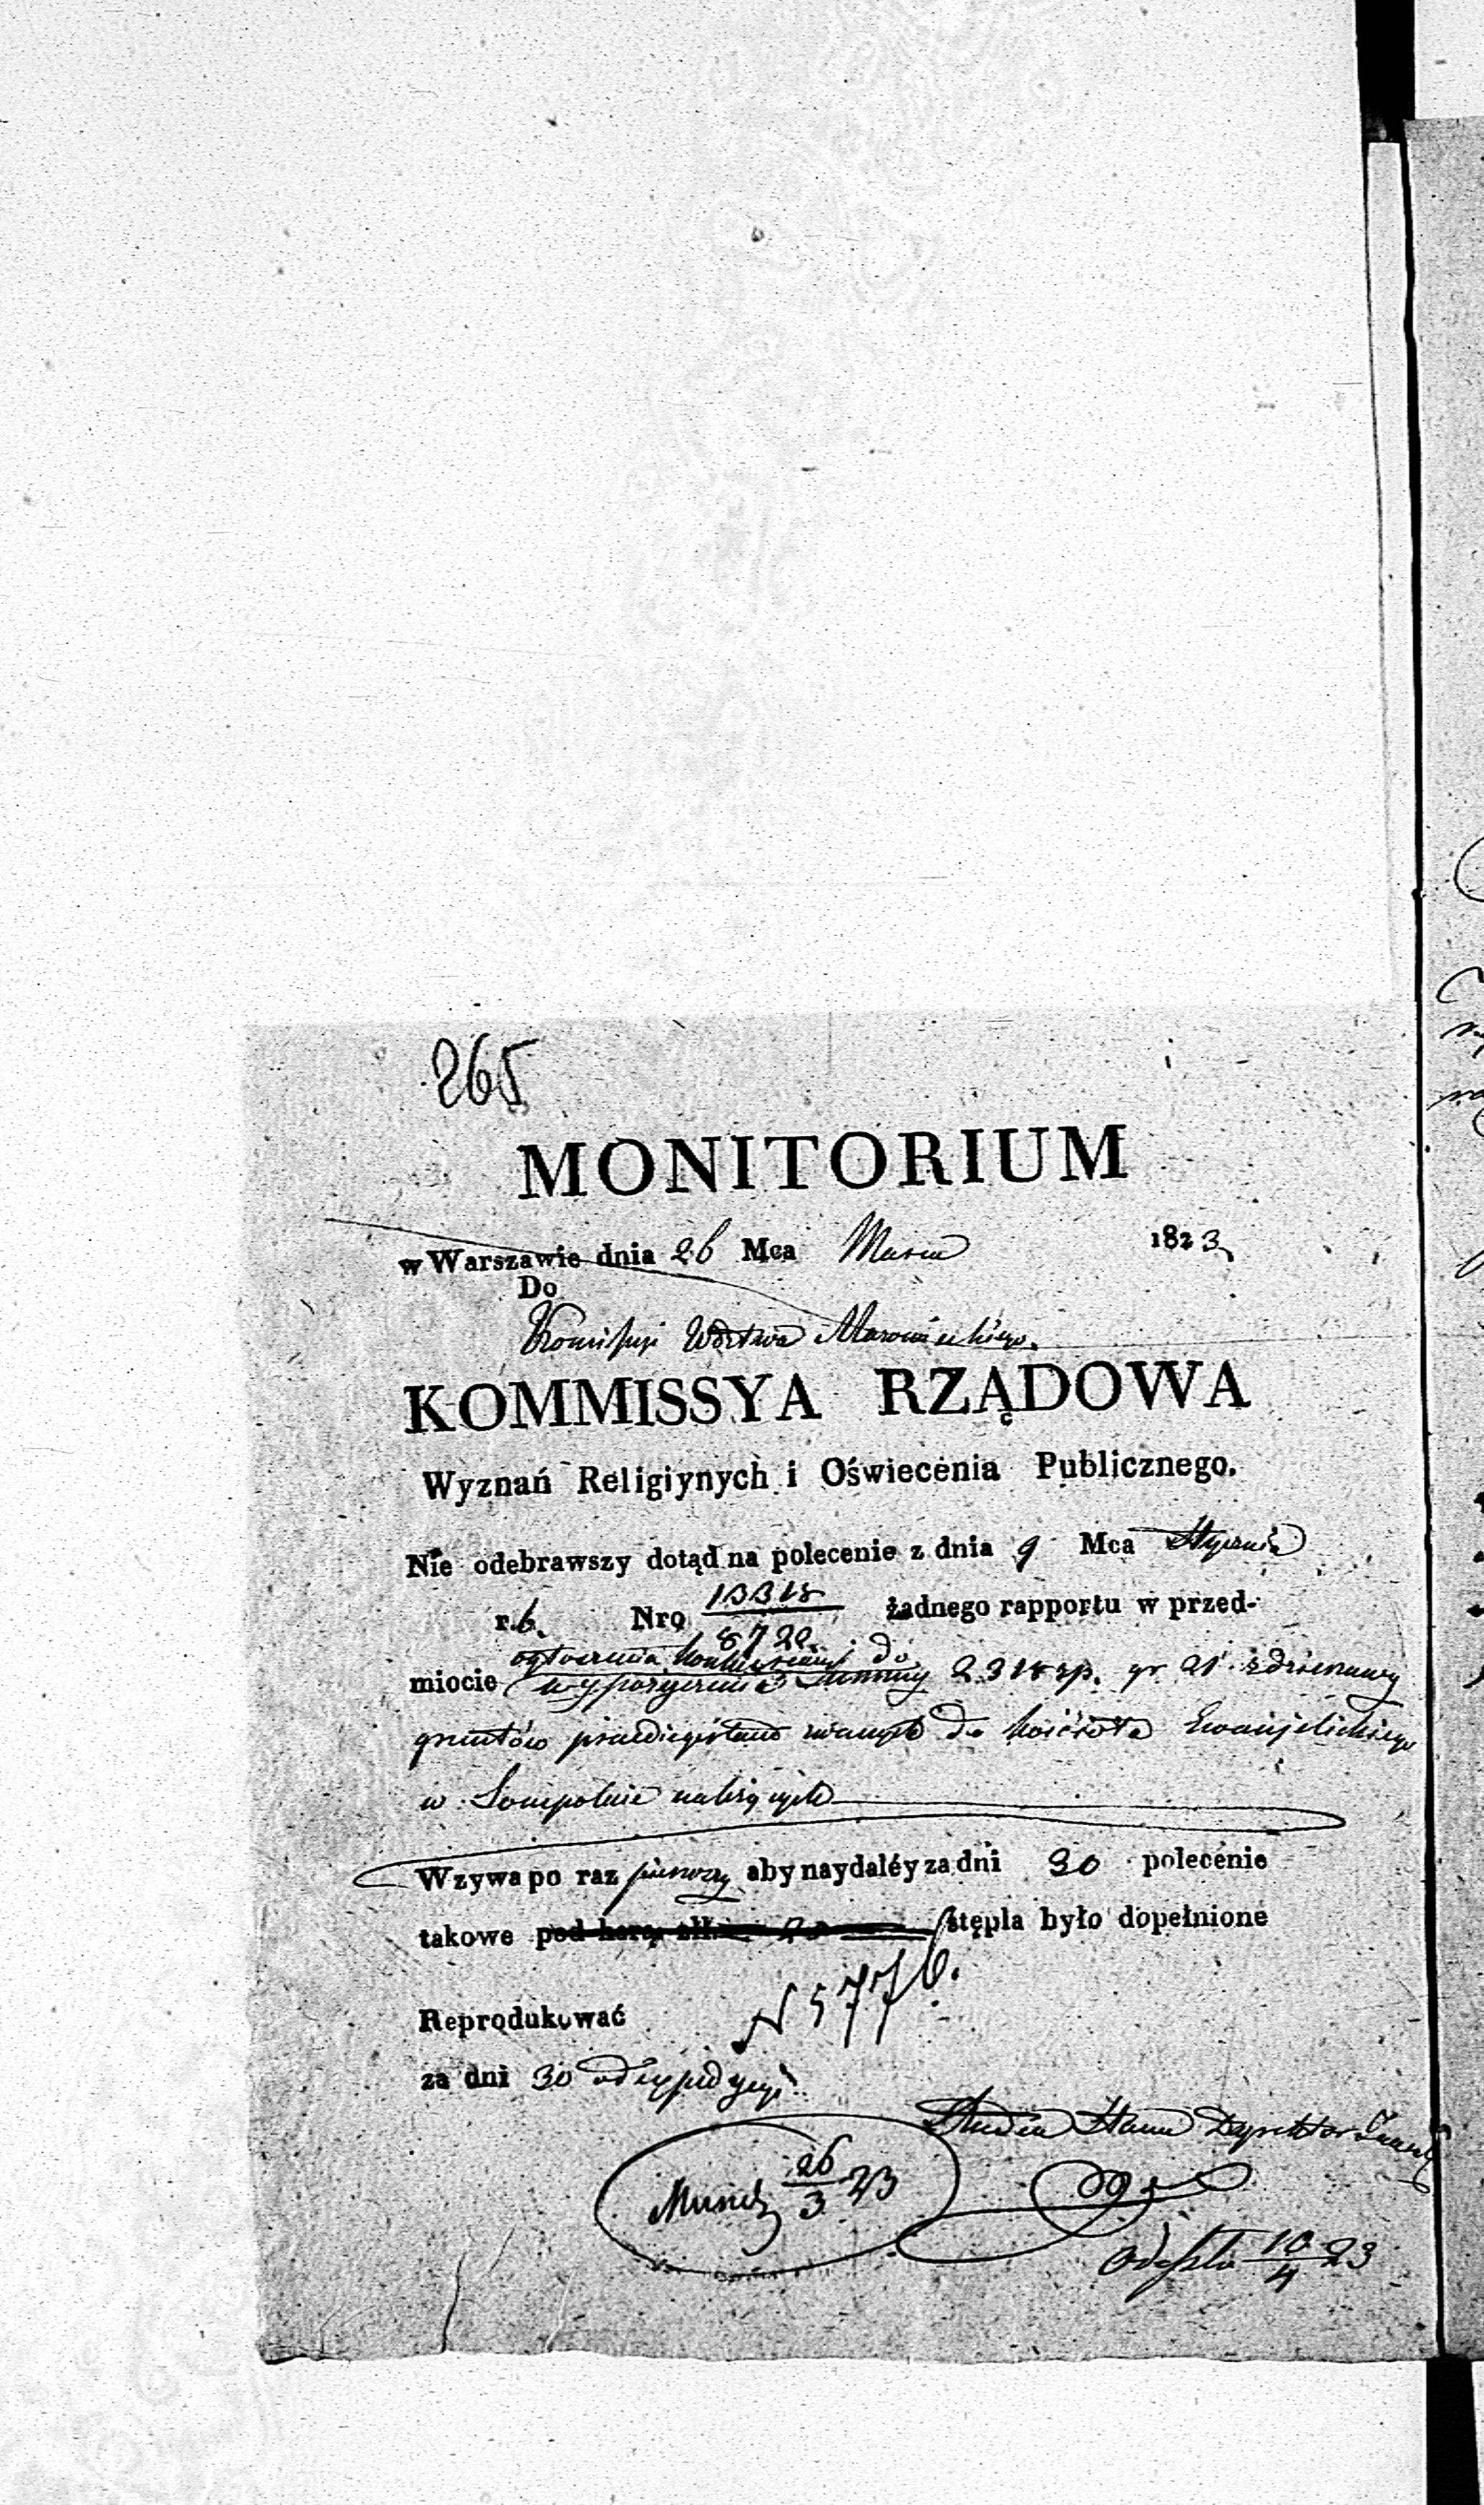 265
MONITORIUM
w Warszawie dnia 26 Mca Marca 1823
Do
Komissyi Wdztwa Mazowieckiego.
KOMMISSYA RZĄDOWA
Wyznań Religiynych i Oświecenia Publicznego.
Nie odebrawszy dotąd na polecenie z dnia 9 Mca Stycznia
r. b. Nro 13318/8722. żadnego rapportu w przed-
ogłoszenia do
miocie wypożyczenia Summy 2318 zp. gr 21 z dzierżawy
gruntów do kościoła Ewanjelickiego
w Sompolnie należących
Wzywa po raz pierwszy aby naydaléy za dni 30 polecenie
takowe pod karą złł. stępla było dopełnione
Reprodukować N 5776.
za dni 30 od expedycyi
Radca Stanu Dyrektor
Mund 26/3 23
Odeszło 10/4 23